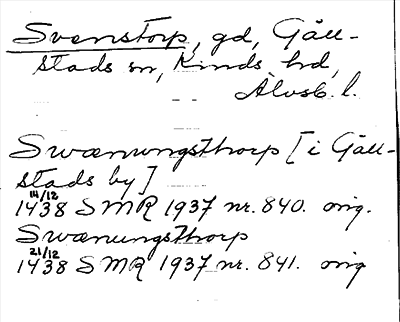 Svenstorp, gd, Gäll-
stads sn, Kinds hd,
Älvsb. l.
Swænungsthorp [i Gäll-
stads by]
14/12
1438 SMR 1937 nr. 840. orig.
Swænungsthorp
21/12
1438 SMR 1937 nr. 841. orig